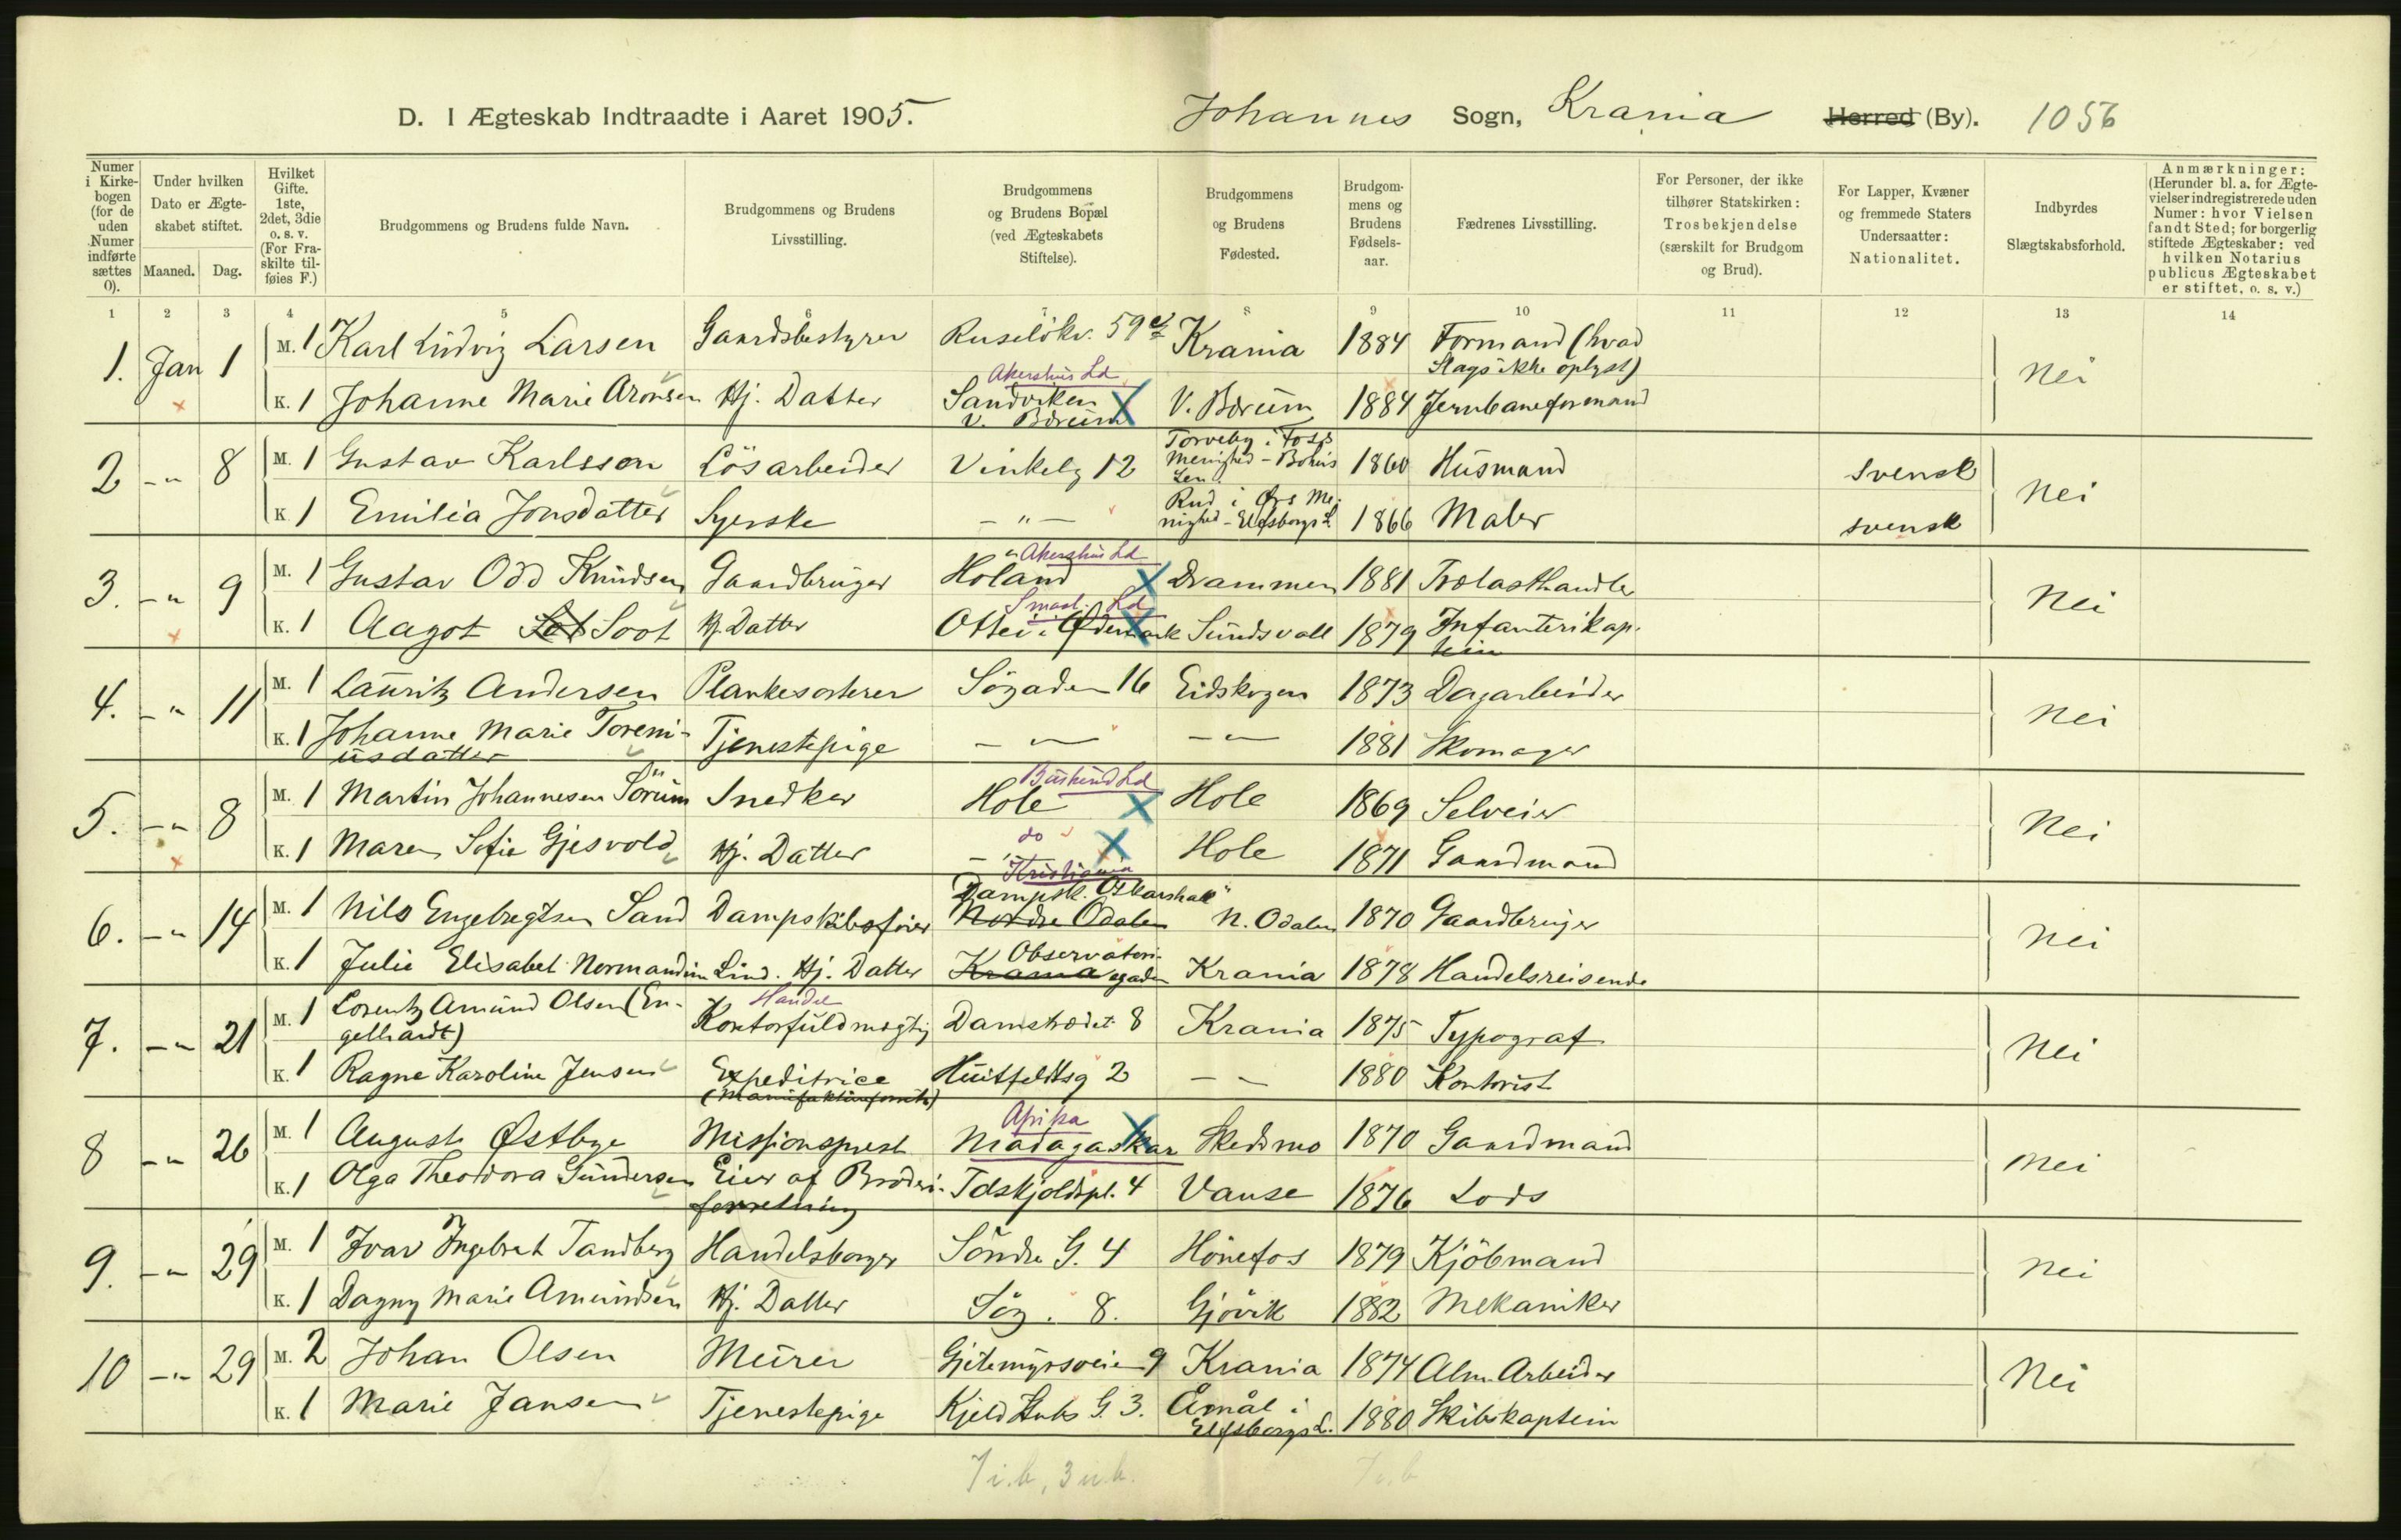 D. I Ægteskab Indtraadte i Aaret 1905. Johannes Sogn, Krania Herred (By). 1056
Numer i Kirkebogen (for de uden Numer indførte sættes 0).
Under hvilken Dato er Ægteskabet stiftet.
Maaned. Dag.
Hvilket Gifte. 1ste, 2det, 3die o. s. v. (For Fraskilte tilføies F.)
Brudgommens og Brudens fulde Navn.
Brudgommens og Brudens Livsstilling.
Brudgommens og Brudens Bopæl (ved Ægteskabets Stiftelse).
Brudgommens og Brudens Fødested.
Brudgommens og Brudens Fødselsaar.
Fædrenes Livsstilling.
For Personer, der ikke tilhører Statskirken: Trosbekjendelse (særskilt for Brudgom og Brud).
For Lapper, Kvæner og fremmede Staters Undersaatter: Nationalitet.
Indbyrdes Slægtskabsforhold.
Anmærkninger: (Herunder bl. a. for Ægtevielser indregistrerede uden Numer: hvor Vielsen fandt Sted; for borgerlig stiftede Ægteskaber: ved hvilken Notarius publicus Ægteskabet er stiftet, o. s. v.)
1 2 3 4 5 6 7 8 9 10 11 12 13 14
1. Jan 1 M. 1 Karl Ludvig Larsen Gaardsbestyrer Ruselökv. 59 Krania 1884 Formand (hvad Slags ikke oplyst) Nei
K. 1 Johanne Marie Aronsen Hj. Datter Akershus Ld Sandviken V. Bærum X V. Bærum 1884 Jernbaneformand
2 -"- 8 M. 1 Gustav Karlsson Lösarbeider Vinkelg 12 Torveby i Foss Menighed - Bohus Len 1860 Husmand svensk Nei
K 1 Emilia Jonsdatter Syerske - " - Rud i Ørs Menighed - Elfsborgs L 1866 Maler svensk
3. -"- 9 M. 1 Gustav Odd Knudsen Gaardbruger Akershus Ld Höland X Drammen 1881 Trælasthandler Nei
K. 1 Aagot Soot Hj. Datter Smaal. Ld Ottei i Ødemark Sundsvall 1879 Infanterikaptein
4. -"- 11 M. 1 Lauritz Andersen Plankesorterer Søgaden 16 Eidskogen 1873 Dagarbeider Nei
K. 1 Johanne Marie Toreniusdatter Tjenestepige - " - - " - 1881 Skomager
5. -"- 8 M. 1 Martin Johannesen Sörum Snedker Buskerud Ld Hole X Hole 1869 Selveier Nei
K. 1 Maren Sofie Gjesvold Hj. Datter do - " - X Hole 1871 Gaardmand
6. -"- 14 M. 1 Nils Engebregtsen Sand Dampskibsfører Kristiania Dampsk. "Oskarshall" Nordre Odalen N. Odalen 1870 Gaardbruger Nei
K. 1 Julie Elisabet Normandin Lind. Hj. Datter Krania Observatoriegaden Krania 1878 Handelsreisende
7. -"- 21 M. 1 Lorentz Amund Olsen (Engelhardt) Handel Kontorfuldmægtig Damstrædet 8 Krania 1875 Typograf Nei
K. 1 Ragna Karoline Jensen Expeditrice (Manufakturforretn) Huitfeldtsg 2 - " - 1880 Kontorist
8 -"- 26 M. 1 August Østbye Missionsprest Afrika Madagaskar X Skedsmo 1870 Gaardmand Nei
K. 1 Olga Theodora Gundersen Eier af Broderiforretning Tdskjoldspl. 4 Vanse 1876 Lods
9. -"- 29 M. 1 Ivar Ingebret Tandberg Handelsborger Söndre G. 4 Hönefos 1879 Kjöbmand Nei
K. 1 Dagny Marie Amundsen Hj. Datter Søg. 8. Gjövik 1882 Mekaniker
10 -"- 29 M. 2 Johan Olsen Murer Gjetemyrsveien 9 Krania 1874 Alm. Arbeider Nei
K. 1 Marie Jansen Tjenestepige Kjeld Stubs G. 3. Åmål i Elfsborgs L. 1880 Skibskaptein
7 i.b, 3 u.b.